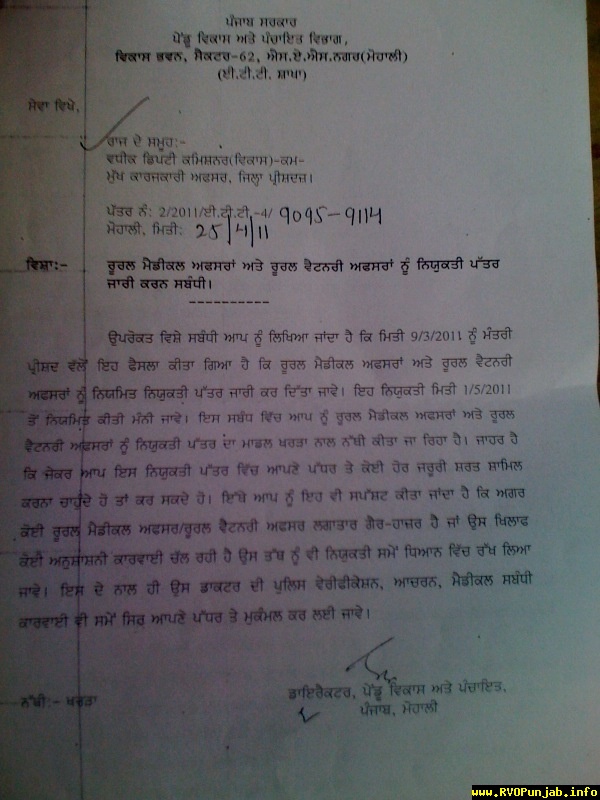 ਪੰਜਾਬ ਸਰਕਾਰ
ਪੇਂਡੂ ਵਿਕਾਸ ਅਤੇ ਪੰਚਾਇਤ ਵਿਭਾਗ,
ਵਿਕਾਸ ਭਵਨ, ਸੈਕਟਰ-62, ਐਸ.ਏ.ਐਸ.ਨਗਰ(ਮੋਹਾਲੀ)
(ਈ.ਟੀ.ਟੀ. ਸ਼ਾਖਾ)
ਸੇਵਾ ਵਿਖੇ,
ਰਾਜ ਦੇ ਸਮੂਹ:-
ਵਧੀਕ ਡਿਪਟੀ ਕਮਿਸ਼ਨਰ(ਵਿਕਾਸ)-ਕਮ-
ਮੁੱਖ ਕਾਰਜਕਾਰੀ ਅਫਸਰ, ਜਿਲ੍ਹਾ ਪ੍ਰੀਸ਼ਦਜ਼।
ਪੱਤਰ ਨੰ: 2/2011/ਈ.ਟੀ.ਟੀ.-4/ 9095-9114
ਮੋਹਾਲੀ, ਮਿਤੀ: 25/4/11
ਵਿਸ਼ਾ:- ਰੂਰਲ ਮੈਡੀਕਲ ਅਫਸਰਾਂ ਅਤੇ ਰੂਰਲ ਵੈਟਨਰੀ ਅਫਸਰਾਂ ਨੂੰ ਨਿਯੁਕਤੀ ਪੱਤਰ
ਜਾਰੀ ਕਰਨ ਸਬੰਧੀ।
----------
ਉਪਰੋਕਤ ਵਿਸ਼ੇ ਸਬੰਧੀ ਆਪ ਨੂੰ ਲਿਖਿਆ ਜਾਂਦਾ ਹੈ ਕਿ ਮਿਤੀ 9/3/2011 ਨੂੰ ਮੰਤਰੀ
ਪ੍ਰੀਸ਼ਦ ਵੱਲੋਂ ਇਹ ਫੈਸਲਾ ਕੀਤਾ ਗਿਆ ਹੈ ਕਿ ਰੂਰਲ ਮੈਡੀਕਲ ਅਫਸਰਾਂ ਅਤੇ ਰੂਰਲ ਵੈਟਨਰੀ
ਅਫਸਰਾਂ ਨੂੰ ਨਿਯਮਿਤ ਨਿਯੁਕਤੀ ਪੱਤਰ ਜਾਰੀ ਕਰ ਦਿੱਤਾ ਜਾਵੇ। ਇਹ ਨਿਯੁਕਤੀ ਮਿਤੀ 1/5/2011
ਤੋਂ ਨਿਯਮਿਤ ਕੀਤੀ ਮੰਨੀ ਜਾਵੇ। ਇਸ ਸਬੰਧ ਵਿੱਚ ਆਪ ਨੂੰ ਰੂਰਲ ਮੈਡੀਕਲ ਅਫਸਰਾਂ ਅਤੇ ਰੂਰਲ
ਵੈਟਨਰੀ ਅਫਸਰਾਂ ਨੂੰ ਨਿਯੁਕਤੀ ਪੱਤਰ ਦਾ ਮਾਡਲ ਖਰੜਾ ਨਾਲ ਨੱਥੀ ਕੀਤਾ ਜਾ ਰਿਹਾ ਹੈ। ਜਾਹਰ ਹੈ
ਕਿ ਜੇਕਰ ਆਪ ਇਸ ਨਿਯੁਕਤੀ ਪੱਤਰ ਵਿੱਚ ਆਪਣੇ ਪੱਧਰ ਤੇ ਕੋਈ ਹੋਰ ਜਰੂਰੀ ਸ਼ਰਤ ਸ਼ਾਮਿਲ
ਕਰਨਾ ਚਾਹੁੰਦੇ ਹੋ ਤਾਂ ਕਰ ਸਕਦੇ ਹੋ। ਇੱਥੇ ਆਪ ਨੂੰ ਇਹ ਵੀ ਸਪੱਸ਼ਟ ਕੀਤਾ ਜਾਂਦਾ ਹੈ ਕਿ ਅਗਰ
ਕੋਈ ਰੂਰਲ ਮੈਡੀਕਲ ਅਫਸਰ/ਰੂਰਲ ਵੈਟਨਰੀ ਅਫਸਰ ਲਗਾਤਾਰ ਗੈਰ-ਹਾਜ਼ਰ ਹੈ ਜਾਂ ਉਸ ਖਿਲਾਫ
ਕੋਈ ਅਨੁਸ਼ਾਸ਼ਨੀ ਕਾਰਵਾਈ ਚੱਲ ਰਹੀ ਹੈ ਉਸ ਤੱਥ ਨੂੰ ਵੀ ਨਿਯੁਕਤੀ ਸਮੇਂ ਧਿਆਨ ਵਿੱਚ ਰੱਖ ਲਿਆ
ਜਾਵੇ। ਇਸ ਦੇ ਨਾਲ ਹੀ ਉਸ ਡਾਕਟਰ ਦੀ ਪੁਲਿਸ ਵੇਰੀਫੀਕੇਸ਼ਨ, ਆਚਰਨ, ਮੈਡੀਕਲ ਸਬੰਧੀ
ਕਾਰਵਾਈ ਵੀ ਸਮੇਂ ਸਿਰ ਆਪਣੇ ਪੱਧਰ ਤੇ ਮੁਕੰਮਲ ਕਰ ਲਈ ਜਾਵੇ।
ਨੱਥੀ:- ਖਰੜਾ
ਡਾਇਰੈਕਟਰ, ਪੇਂਡੂ ਵਿਕਾਸ ਅਤੇ ਪੰਚਾਇਤ,
ਪੰਜਾਬ, ਮੋਹਾਲੀ
www.RVOPunjab.info